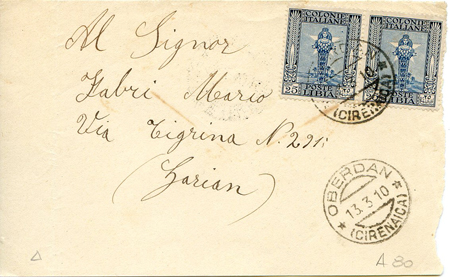 Al Signor
Fabri Mario
Via Tigrina N. 291
(Garian)
COLONIE ITALIANE
25
POSTE LIBIA
COLONIE ITALIANE
POSTE LIBIA
(CIRENAICA)
OBERDAN
13.3.10
(CIRENAICA)
A 80